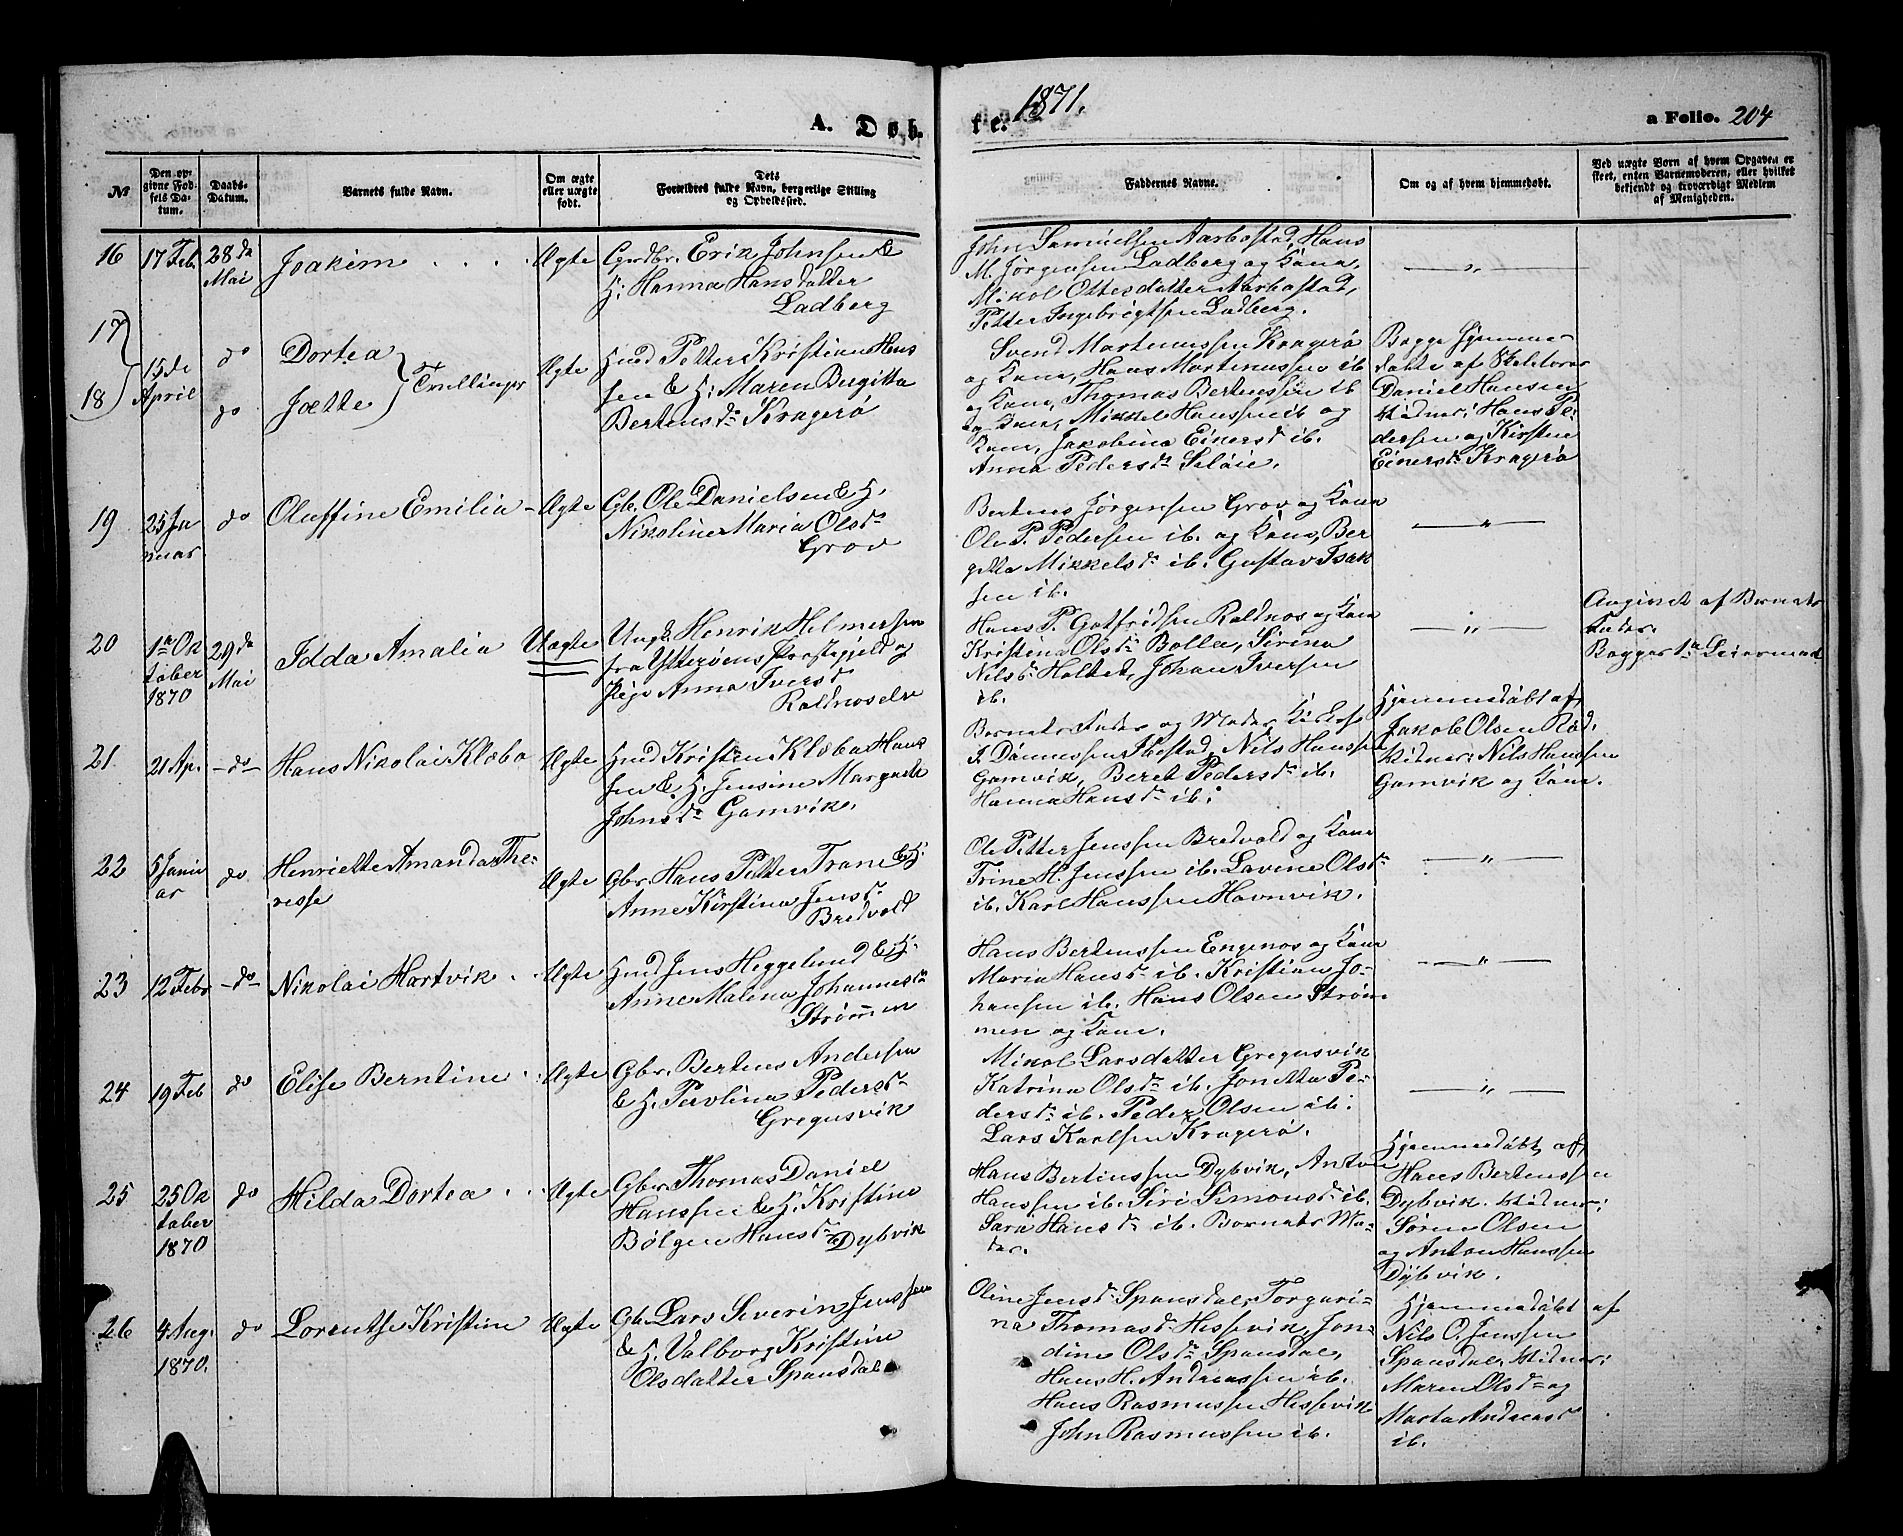 1871.
A. Døb te.
a Folio. 204
№
Den op-
givne Fød-
sels Da-
tum.
Daabs-
Datum.
Barnets fulde Navn.
Om ægte
eller uægte
født.
Dets
Forældres fulde Navn, borgerlige Stilling
og Opholdssted.
Faddernes Navne.
Om og af hvem hjemmedøbt.
Ved uægte Born af hvem Opgaven er
skeet, enten Barnemoderen, eller hvilket
bekjendt og troværdigt Medlem
af Menigheden.
16
17 Feb.
28de
Mai
Joakim
Ægte
Grdbr. Erik Johnsen &
H: Hanna Hansdatter
Ladberg
John Samuelsen Aarbostad, Hans
M. Jørgensen Ladberg og Kone,
Mikol Ottesdatter Aarbostad,
Petter Ingebrigtsen Ladberg.
— " —
17
18
15de
April
do
do
Dortea
Joette
Tvillinger
Ægte
Hmd Petter Kristian Hans
sen & H: Maren Birgitta
Bertensdr Kragerø
Svend Martinussen Kragerø
og Kone, Hans Martinussen ib
og Kone, Thomas Bertenssen ib
og Kone, Mikkel Hanssen ib og
Kone, Jakobina Einersd ib.
Anna Pedersdr Seløie.
Begge hjemme
døbte af
Daniel Hansen
Vidner: Hans Pe-
dersen og Kirsten
Einersdr Kragerø
19
25 Ja
nuar
do
Oluffine Emilia
Ægte
Gb. Ole Danielsen & H.
Nikoline Maria Olsdr
Grov
Bertens Jørgensen Grov og Kone
Ole P. Pedersen ib. og Kone, Ber
gitta Mikkelsdr ib. Gustav Isak
sen ib.
— " —
20
1ste Ok
tober
1870
29de
Mai
Idda Amalia
Uægte
Ungk. Henrik Helmersen
fra Ytterøens Præstegjeld og
Pige Anna Iversdr
Roldnoselv
Hans P. Gotfridsen Roldnos og Kone
Kristina Olsdr Bolla, Sirina
Nilsdr Holtet, Johan Iversen
ib.
— " —
Angivet af Barnets
Fader.
Begges 1ste Leiermaal
21.
21 Ap.
do
Hans Nikolai Klæbo
Ægte
Hmd Kristen Klæbo Hans
sen & H. Jensine Margrete
Johnsdr Gamvik.
Barnets Fader og Moder,
J. Dønnessen Ibestad, Nils Hanssen
Gamvik, Beret Pedersdr ib.
Hanna Hansdr ib.
Hjemmedøbt af
Jakob Olsen Rød.
Vidner: Nils Hanssen
Gamvik og Kone.
22
5 Janu
ar
do
Henriette Amanda The-
resse
Ægte
Gbr. Hans Petter Trane & H.
Anne Kirstina Jensdr
Bredvold
Ole Petter Jenssen Bredvold og Kone
Trine H. Jenssen ib. Lavine Olsdr
ib. Karl Hanssen Havnvik.
— " —
23
12 Febr
do
Nikolai Hartvik
Ægte
Hmd Jens Heggelund & H.
Anne Malena Johannesdr
Strømmen
Hans Bertenssen Engenos og Kone
Maria Hansdr ib. Kristian Jo-
hansen ib. Hans Olsen Strøm
men og Kone.
— " —
24
19 Feb
do
Elise Berntine
Ægte
Gbr. Bertens Andersen
& H. Pevlina Pedersdr
Gregusvik
Mikol Larsdatter Gregusvik
Katrina Olsdr ib. Jonetta Pe-
dersdr ib. Peder Olsen ib.
Lars Karlsen Kragerø.
— " —
25
25 Ok
tober
1870
do
Hilda Dortea
Ægte
Gbr. Thomas Daniel
Hanssen & H. Kristine
Bølgen Hansdr Dybvik
Hans Bertinssen Dybvik, Anton
Hanssen ib. Siri Simonsdr ib.
Sara Hansdr ib. Barnets Mo-
der.
Hjemmedøbt af
Hans Bertenssen
Dybvik. Vidner:
Søren Olsen
og Anton Hanssen
Dybvik.
26
4 Aug.
1870.
do
Lorentse Kristine
Ægte
Gb. Lars Severin Jenssen
& H. Valborg Kristine
Olsdatter Spansdal
Oline Jensdr Spansdal, Torgari-
na Thomasdr Hessevik, Jon-
dine Olsdr Spansdal,
Hans H. Andreassen ib.
Hans Rasmussen Hessevik
John Rasmussen ib.
Hjemmedøbt af
Nils O. Jenssen
Spansdal, Vidner:
Maren Olsdr og
Marta Andreasdr
ib.